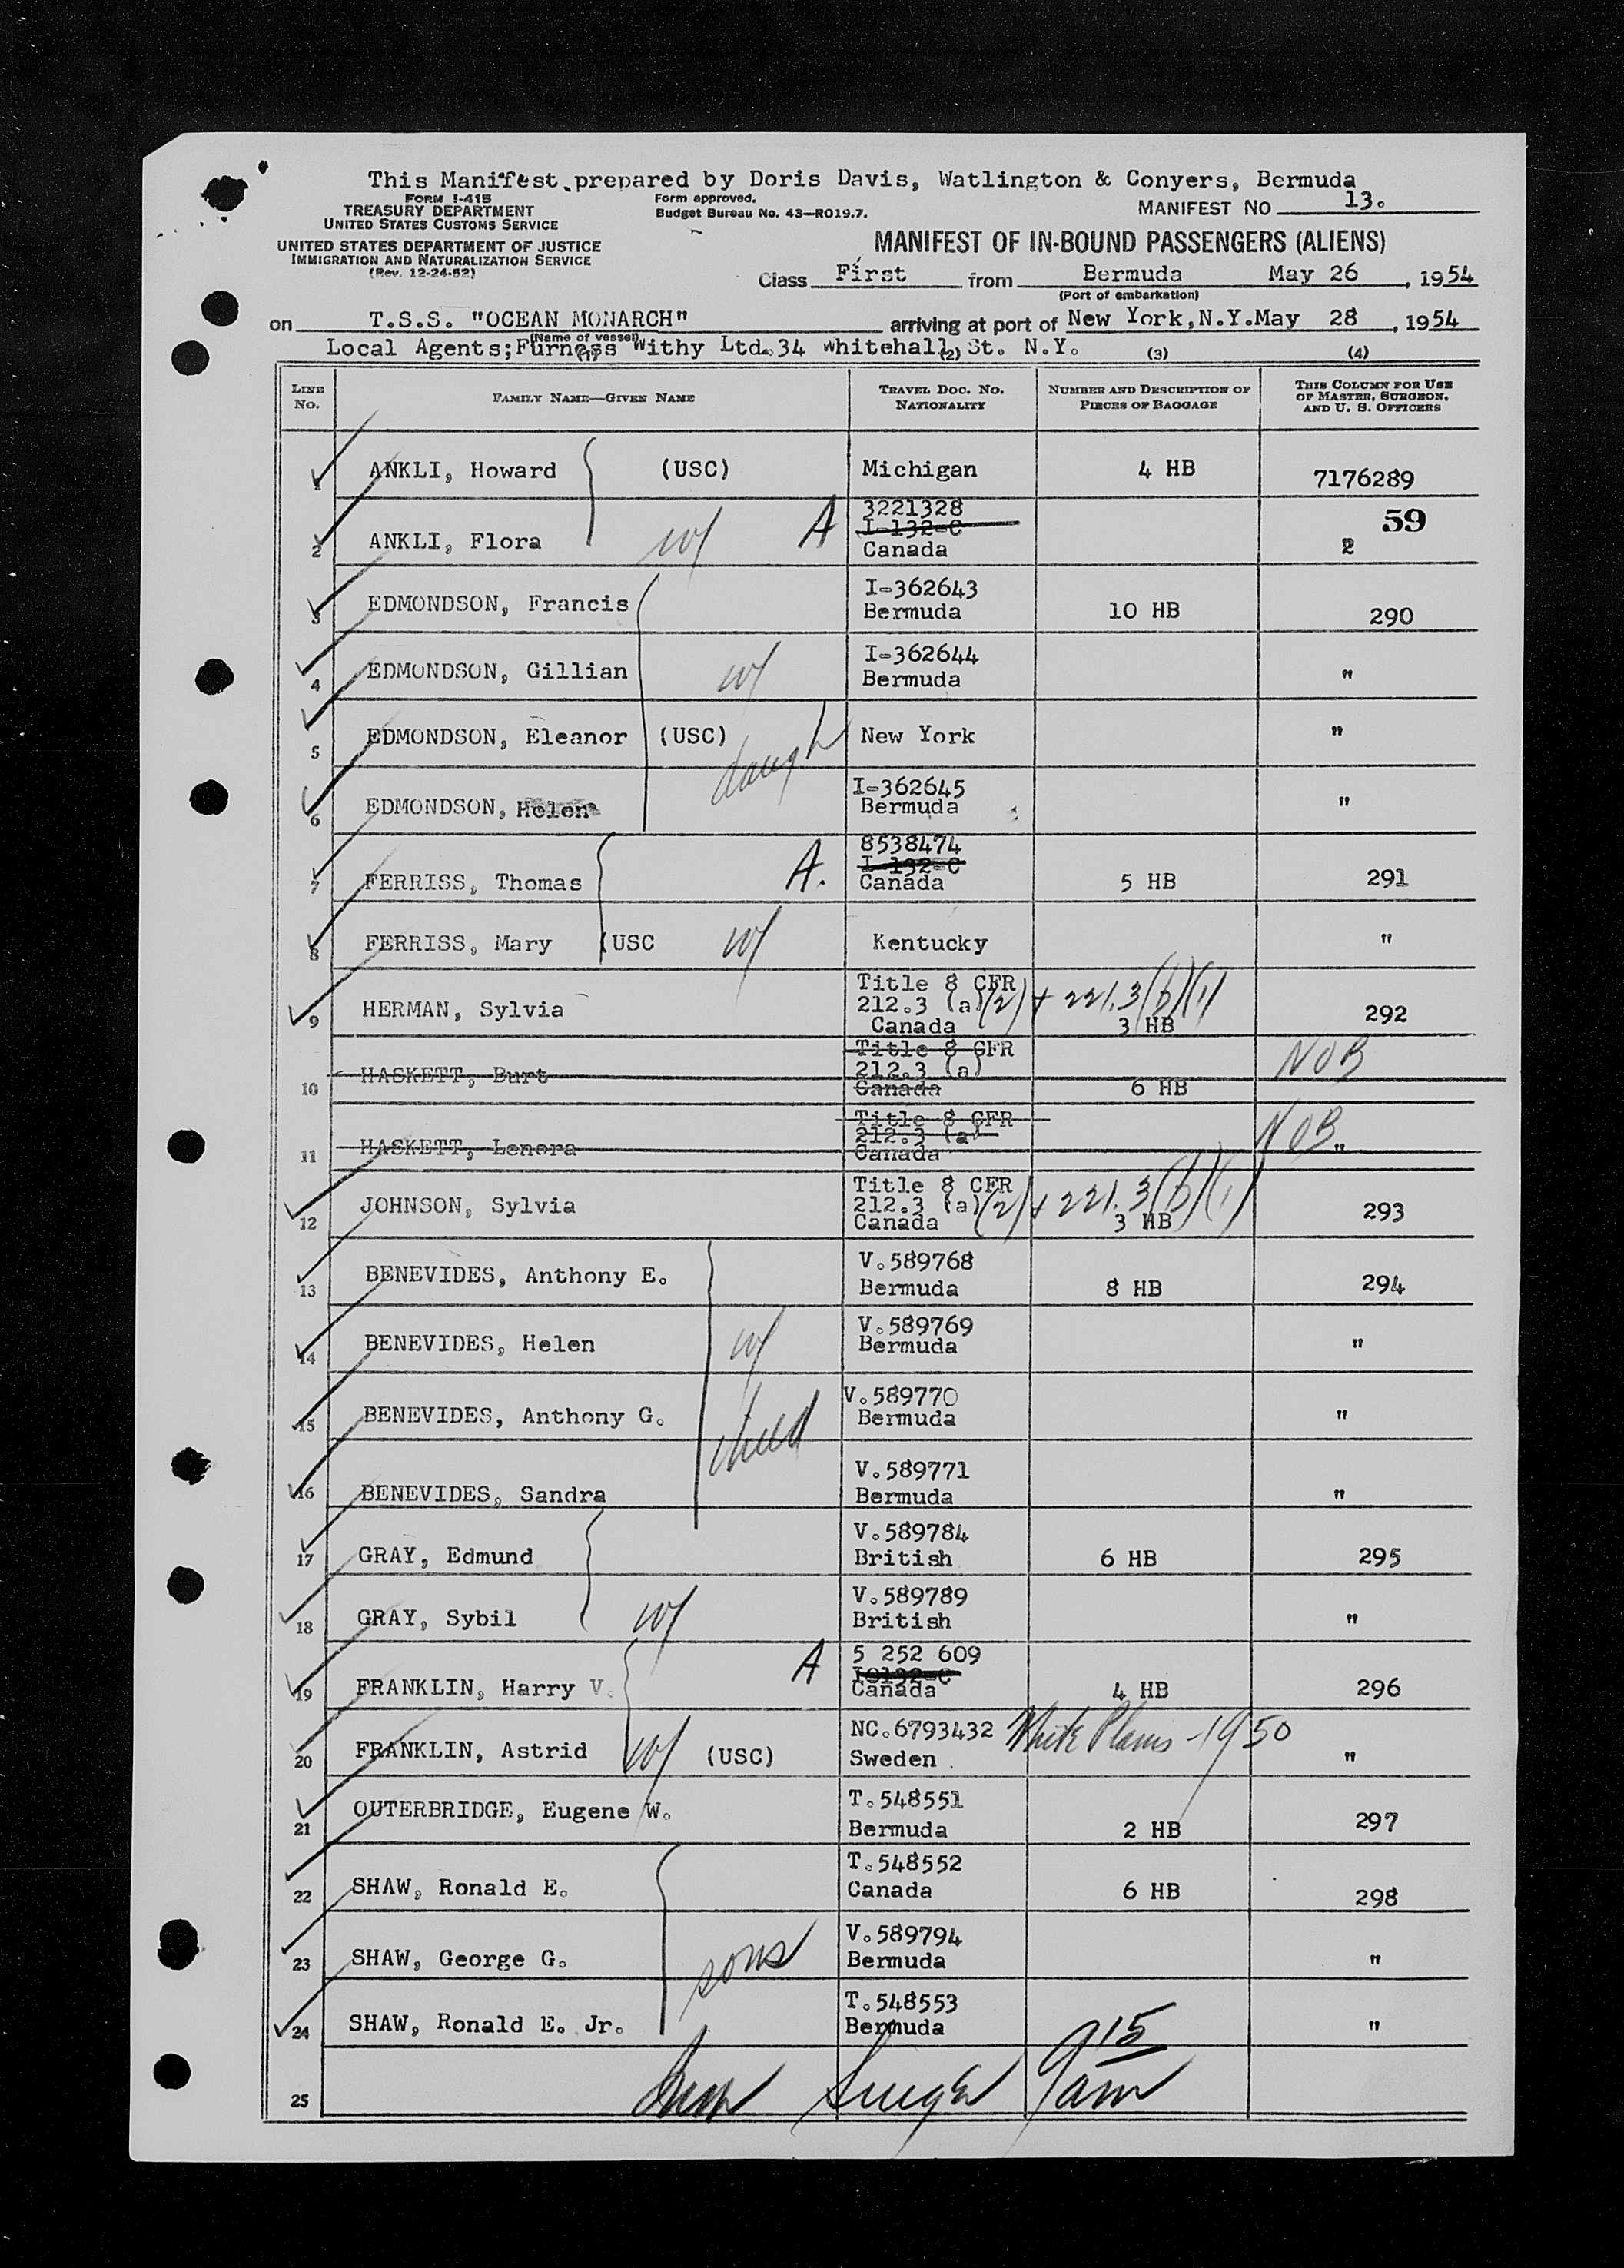 This Manifest prepared by Doris Davis, Watlington & Conyers, Bermuda
FORM I-415
TREASURY DEPARTMENT
UNITED STATES CUSTOMS SERVICE
UNITED STATES DEPARTMENT OF JUSTICE
IMMIGRATION AND NATURALIZATION SERVICE
(Rev. 12-24-52)
Form approved.
Budget Bureau No. 43—RO19.7.
MANIFEST NO 13.
MANIFEST OF IN-BOUND PASSENGERS (ALIENS)
Class First from Bermuda May 26, 1954
(Port of embarkation)
on T.S.S. "OCEAN MONARCH" arriving at port of New York, N.Y. May 28, 1954
(Name of vessel)
Local Agents; Furness Withy Ltd. 34 Whitehall St. N.Y.
(1) (2) (3) (4)
LINE NO. FAMILY NAME—GIVEN NAME TRAVEL DOC. NO. NATIONALITY NUMBER AND DESCRIPTION OF PIECES OF BAGGAGE THIS COLUMN FOR USE OF MASTER, SURGEON, AND U. S. OFFICERS
1 ANKLI, Howard (USC) Michigan 4 HB 7176289
2 ANKLI, Flora w/ A 3221328 I-132-C Canada 59 "
3 EDMONDSON, Francis I-362643 Bermuda 10 HB 290
4 EDMONDSON, Gillian w/ I-362644 Bermuda "
5 EDMONDSON, Eleanor (USC) daugh New York "
6 EDMONDSON, Helen I-362645 Bermuda "
7 FERRISS, Thomas A. 8538474 I-132-C Canada 5 HB 291
8 FERRISS, Mary (USC w/ Kentucky "
9 HERMAN, Sylvia Title 8 CFR 212.3 (a)(2) + 221.3(b)(1) Canada 3 HB 292
10 HASKETT, Burt Title 8 CFR 212.3 (a) Canada 6 HB NOB
11 HASKETT, Lenora Title 8 CFR 212.3 (a) Canada NOB "
12 JOHNSON, Sylvia Title 8 CFR 212.3 (a)(2) + 221.3(b)(1) Canada 3 HB 293
13 BENEVIDES, Anthony E. V.589768 Bermuda 8 HB 294
14 BENEVIDES, Helen w/ V.589769 Bermuda "
15 BENEVIDES, Anthony G. child V.589770 Bermuda "
16 BENEVIDES, Sandra V.589771 Bermuda "
17 GRAY, Edmund V.589784 British 6 HB 295
18 GRAY, Sybil w/ V.589789 British "
19 FRANKLIN, Harry V. A 5 252 609 Canada 4 HB 296
20 FRANKLIN, Astrid w/ (USC) NC.6793432 Sweden White Plains - 1950 "
21 OUTERBRIDGE, Eugene W. T.548551 Bermuda 2 HB 297
22 SHAW, Ronald E. T.548552 Canada 6 HB 298
23 SHAW, George G. sons V.589794 Bermuda "
24 SHAW, Ronald E. Jr. T.548553 Bermuda "
25 915